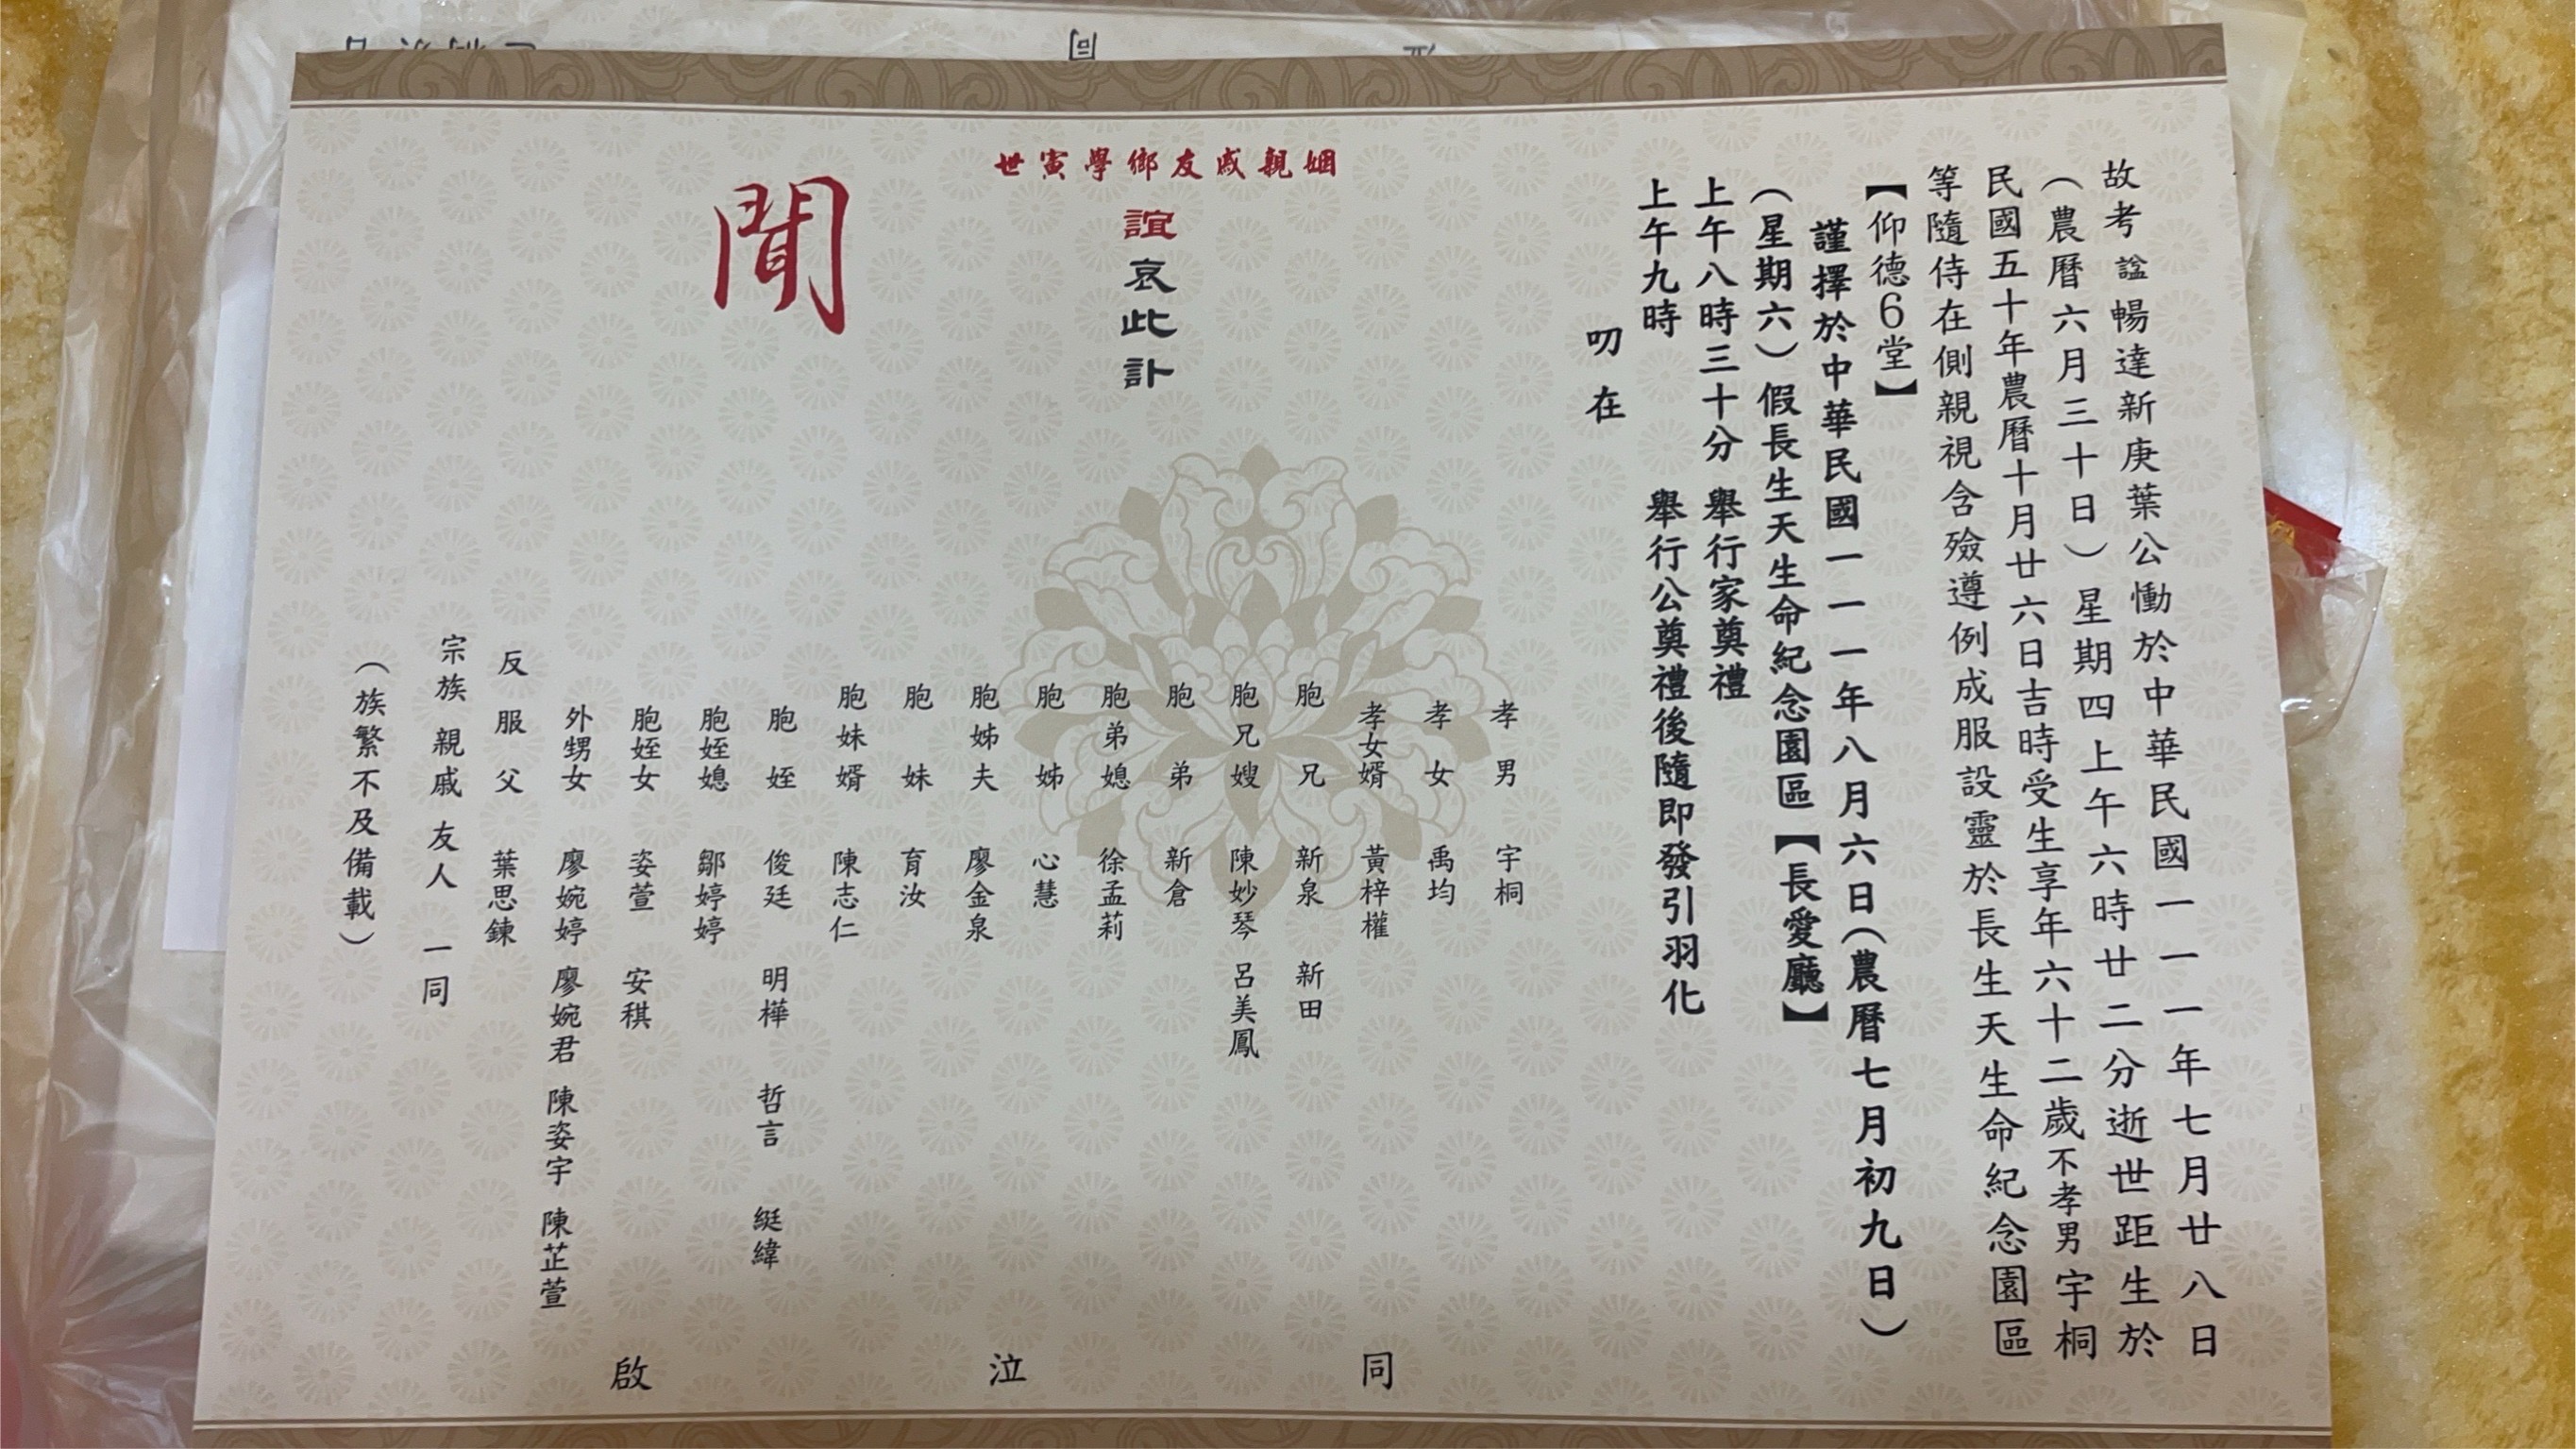 故考諡暢達新庚葉公慟於中華民國一一一年七月廿八日
（農曆六月三十日）星期四上午六時廿二分逝世距生於
民國五十年農曆十月廿六日吉時受生享年六十二歲不孝男宇桐
等隨侍在側親視含殮遵例成服設靈於長生天生命紀念園區
【仰德6堂】
謹擇於中華民國一一一年八月六日（農曆七月初九日）
（星期六）假長生天生命紀念園區【長愛廳】
上午八時三十分 舉行家奠禮
上午九時 舉行公奠禮後隨即發引羽化
叨在
姻親戚友鄉學寅世
誼哀此訃
聞
孝男 宇桐
孝女 禹均
孝女婿 黃梓權
胞兄 新泉 新田
胞兄嫂 陳妙琴 呂美鳳
胞弟 新倉
胞弟媳 徐孟莉
胞姊 心慧
胞姊夫 廖金泉
胞妹 育汝
胞妹婿 陳志仁
胞姪 俊廷 明樺 哲言 綎緯
胞姪媳 鄒婷婷
胞姪女 姿萱 安稘
外甥女 廖婉婷 廖婉君 陳姿宇 陳芷萱
反服父 葉思鍊
宗族親戚友人一同
（族繁不及備載）
同泣啟